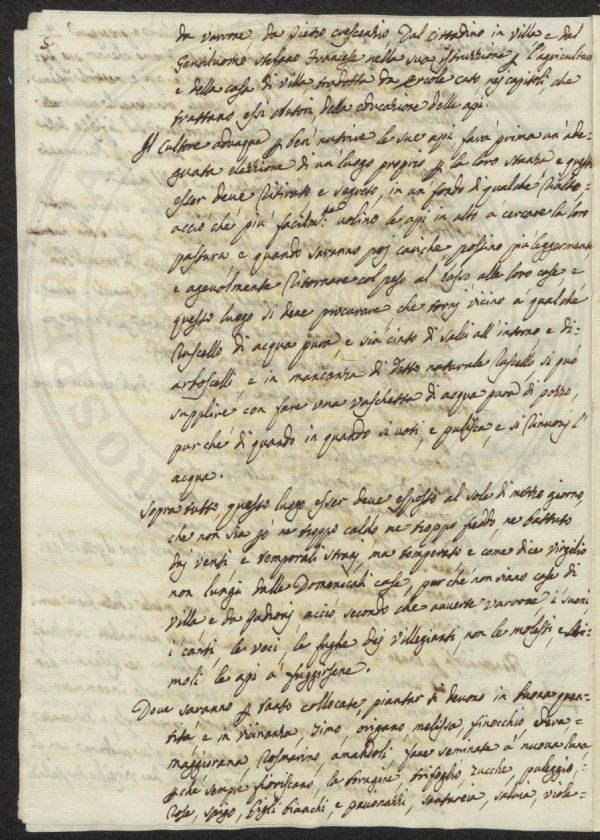 5.
da varone, da pietro crescenzio Dal cittadino in villa e dal
Gentiluomo Stefano francese nella sua istruzzione p l'agricultura
e della casa di villa tradotta da ercole cato nej capitoli, che
trattano essi Autori, della educazione delle api.
Il cultore adunque p ben nutrire le sue api, farà prima un' ade-
guata elezzione di un luogo proprio p la loro stanza e questo
esser deve Ritirato e segreto, in un fondo di qualche Rialto
acciò chè più facilm.te volino le api in alto a cercare la loro
pastura e quando saranno poj cariche possino più leggermente,
e agevolmente Ritornare col peso al basso alle loro case, e
questo luogo si deve procurare che torni vicino a qualche
Ruscello di acqua pura, e sia cinto di salci all' intorno e di
arboscelli e in mancanza di detto naturale Ruscello si può
supplire con fare una vaschetta di acqua pura di pozzo,
pur chè di quando in quando si voti, e pulisca, e si Rinuovj l'
acqua.
Sopra tutto questo luogo esser deve esposto al sole di mezzo giorno,
che non sia pò ne troppo caldo, ne troppo freddo, ne battuto
daj venti e temporali strani, ma temperato e come dice virgilio
non lungi dalle Domenicali case, pur chè non siano case di
villa e da padronj acciò secondo chè auverte varrone i suoni
i canti le voci, le fughe dej villegianti, non le molesti, e sti-
moli le api a fuggirsene.
Dove saranno p tanto collocate, piantar si devono in buona quan-
tità e in vicinanza, timo, origano melissa, finocchio, edera
maggiorana Rosmarino, amandoli fave seminate a nuova luna
p chè sempre fioriscano, la borragine trifoglio, zucche, puleggio,
Rose, spigo, gigli bianchi, e pavonazzi, santureia, salvia, viole